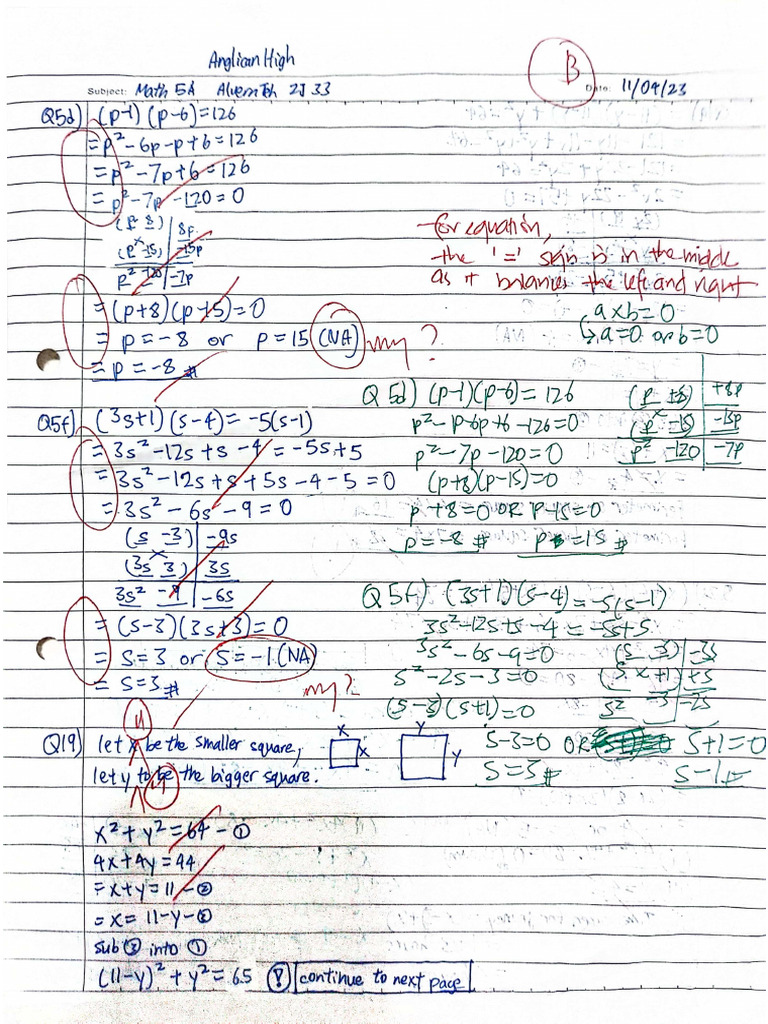 Anglican High
B
Subject: Math 5A 2J 33 Date: 11/04/23
Q5d) (p-1)(p-6)=126
= p²-6p-p+6=126
= p²-7p+6=126
= p²-7p-120=0
(p 8) | 8p
(p -15) | -15p
p² -120 | -7p
= (p+8)(p-15)=0
= p=-8 or p=15 (NA) why?
= p=-8 #
-for equation,
the '=' sign is in the middle
as it balances the left and right
a×b=0
↳ a=0 or b=0
Q5d) (p-1)(p-6)=126
p²-p-6p+6-126=0
p²-7p-120=0
(p+8)(p-15)=0
p+8=0 OR p-15=0
p=-8 # p=15 #
(p +8) | +8p
(p -15) | -15p
p² -120 | -7p
Q5f) (3s+1)(s-4)=-5(s-1)
= 3s²-12s+s-4=-5s+5
= 3s²-12s+s+5s-4-5=0
= 3s²-6s-9=0
(s -3) | -9s
(3s 3) | 3s
3s² -9 | -6s
= (s-3)(3s+3)=0
= s=3 or s=-1 (NA)
= s=3 # why?
Q5f) (3s+1)(s-4)=-5(s-1)
3s²-12s+s-4=-5s+5
3s²-6s-9=0
s²-2s-3=0
(s-3)(s+1)=0
(s -3) | -3s
(s +1) | +s
s² -3 | -2s
s-3=0 OR s+1=0
s=3 # s-1 #
Q19) let x be the smaller square,
let y to be the bigger square.
x
x
y
y
x²+y²=64-①
4x+4y=44
= x+y=11-②
= x=11-y-③
sub③ into ①
(11-y)²+y²=65 ! continue to next page